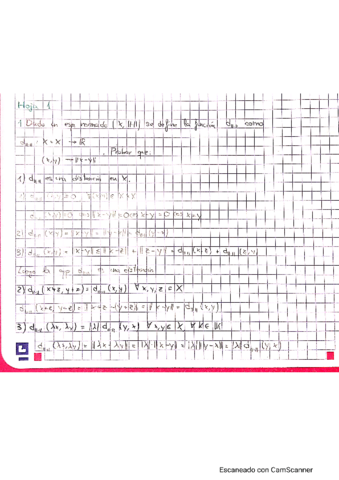 Hoja 1
1 Dado un esp normado (X, || ||) se define la función d|| || como
d|| || : X × X → ℝ
(x,y) → ||x-y|| . Probar que:
1) d|| || es una distancia en X.
2) d|| || (x,y) = ||x-y|| = ||y-x|| = d|| || (y,x)
3) d|| || (x,y) = ||x-y|| ≤ ||x-z|| + ||z-y|| = d|| || (x,z) + d|| || (z,y)
Luego la app d|| || es una distancia
2) d|| || (x+z, y+z) = d|| || (x,y) ∀ x,y,z ∈ X
d|| || (x+z, y+z) = ||x+z-(y+z)|| = ||x-y|| = d|| || (x,y)
3) d|| || (λx, λy) = |λ| d|| || (y,x) ∀ x,y ∈ X ∀ λ ∈ K
d|| || (λx, λy) = ||λx-λy|| = |λ| ||x-y|| = |λ| ||y-x|| = |λ| d|| || (y,x)
Escaneado con CamScanner